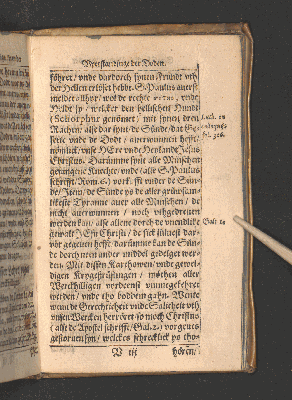 Vperstandinge der Doden.
föhret / vnde dardorch synen Fründt vth
der Hellen erlöset hebbe. S. Paulus auerst
meldet allhyr / wol de rechte
vnde
Bildt sy / welcker den hellischen Hundt
(Schorphur genömet) mit synen dren
Rachen / alse dar synt de Sünde / dat Ge-
sette vnde de Dodt / auerwunnen hefft /
nömlick / vnse HEre vnde Heylandt
Christus. Darümme synt alle Minschen
gefangene Knechte / vnde (alse S. Paulus
schrifft / Rom. 6.)
vnder de Sün-
de /
de Sünde ys de aller grüwsam-
ligeste Tyranne auer alle Minschen / de
nicht auerwunnen / noch vthgedreuen
werden kan / alse allene dorch de vnendtlike
gewalt JEsu Christi / de sick süluest dar-
vör gegeuen hefft / darümme kan de Sün-
de dorch nen ander middel gedelget wer-
den. Mit dissen Karthowen / vnde gewel-
digen Krygesrüstingen / möthen aller
Werckhilligen verdenst vmmegestohret
werden / vnde tho boddem gahn. Wente
wenn de Gerechticheit vnde Salicheit vth
vnsen Wercken herröret / so moth Christus
(alse de Apostel schrifft / Gal. 2.) vorgeues
gestoruen syn / welckes schrecklick ys tho
V iij
hören /
Gal. 2